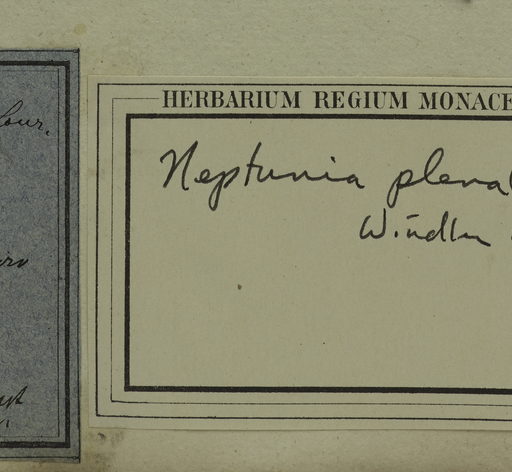 Lour.
HERBARIUM REGIUM MONACE
Neptunia plena
Windler